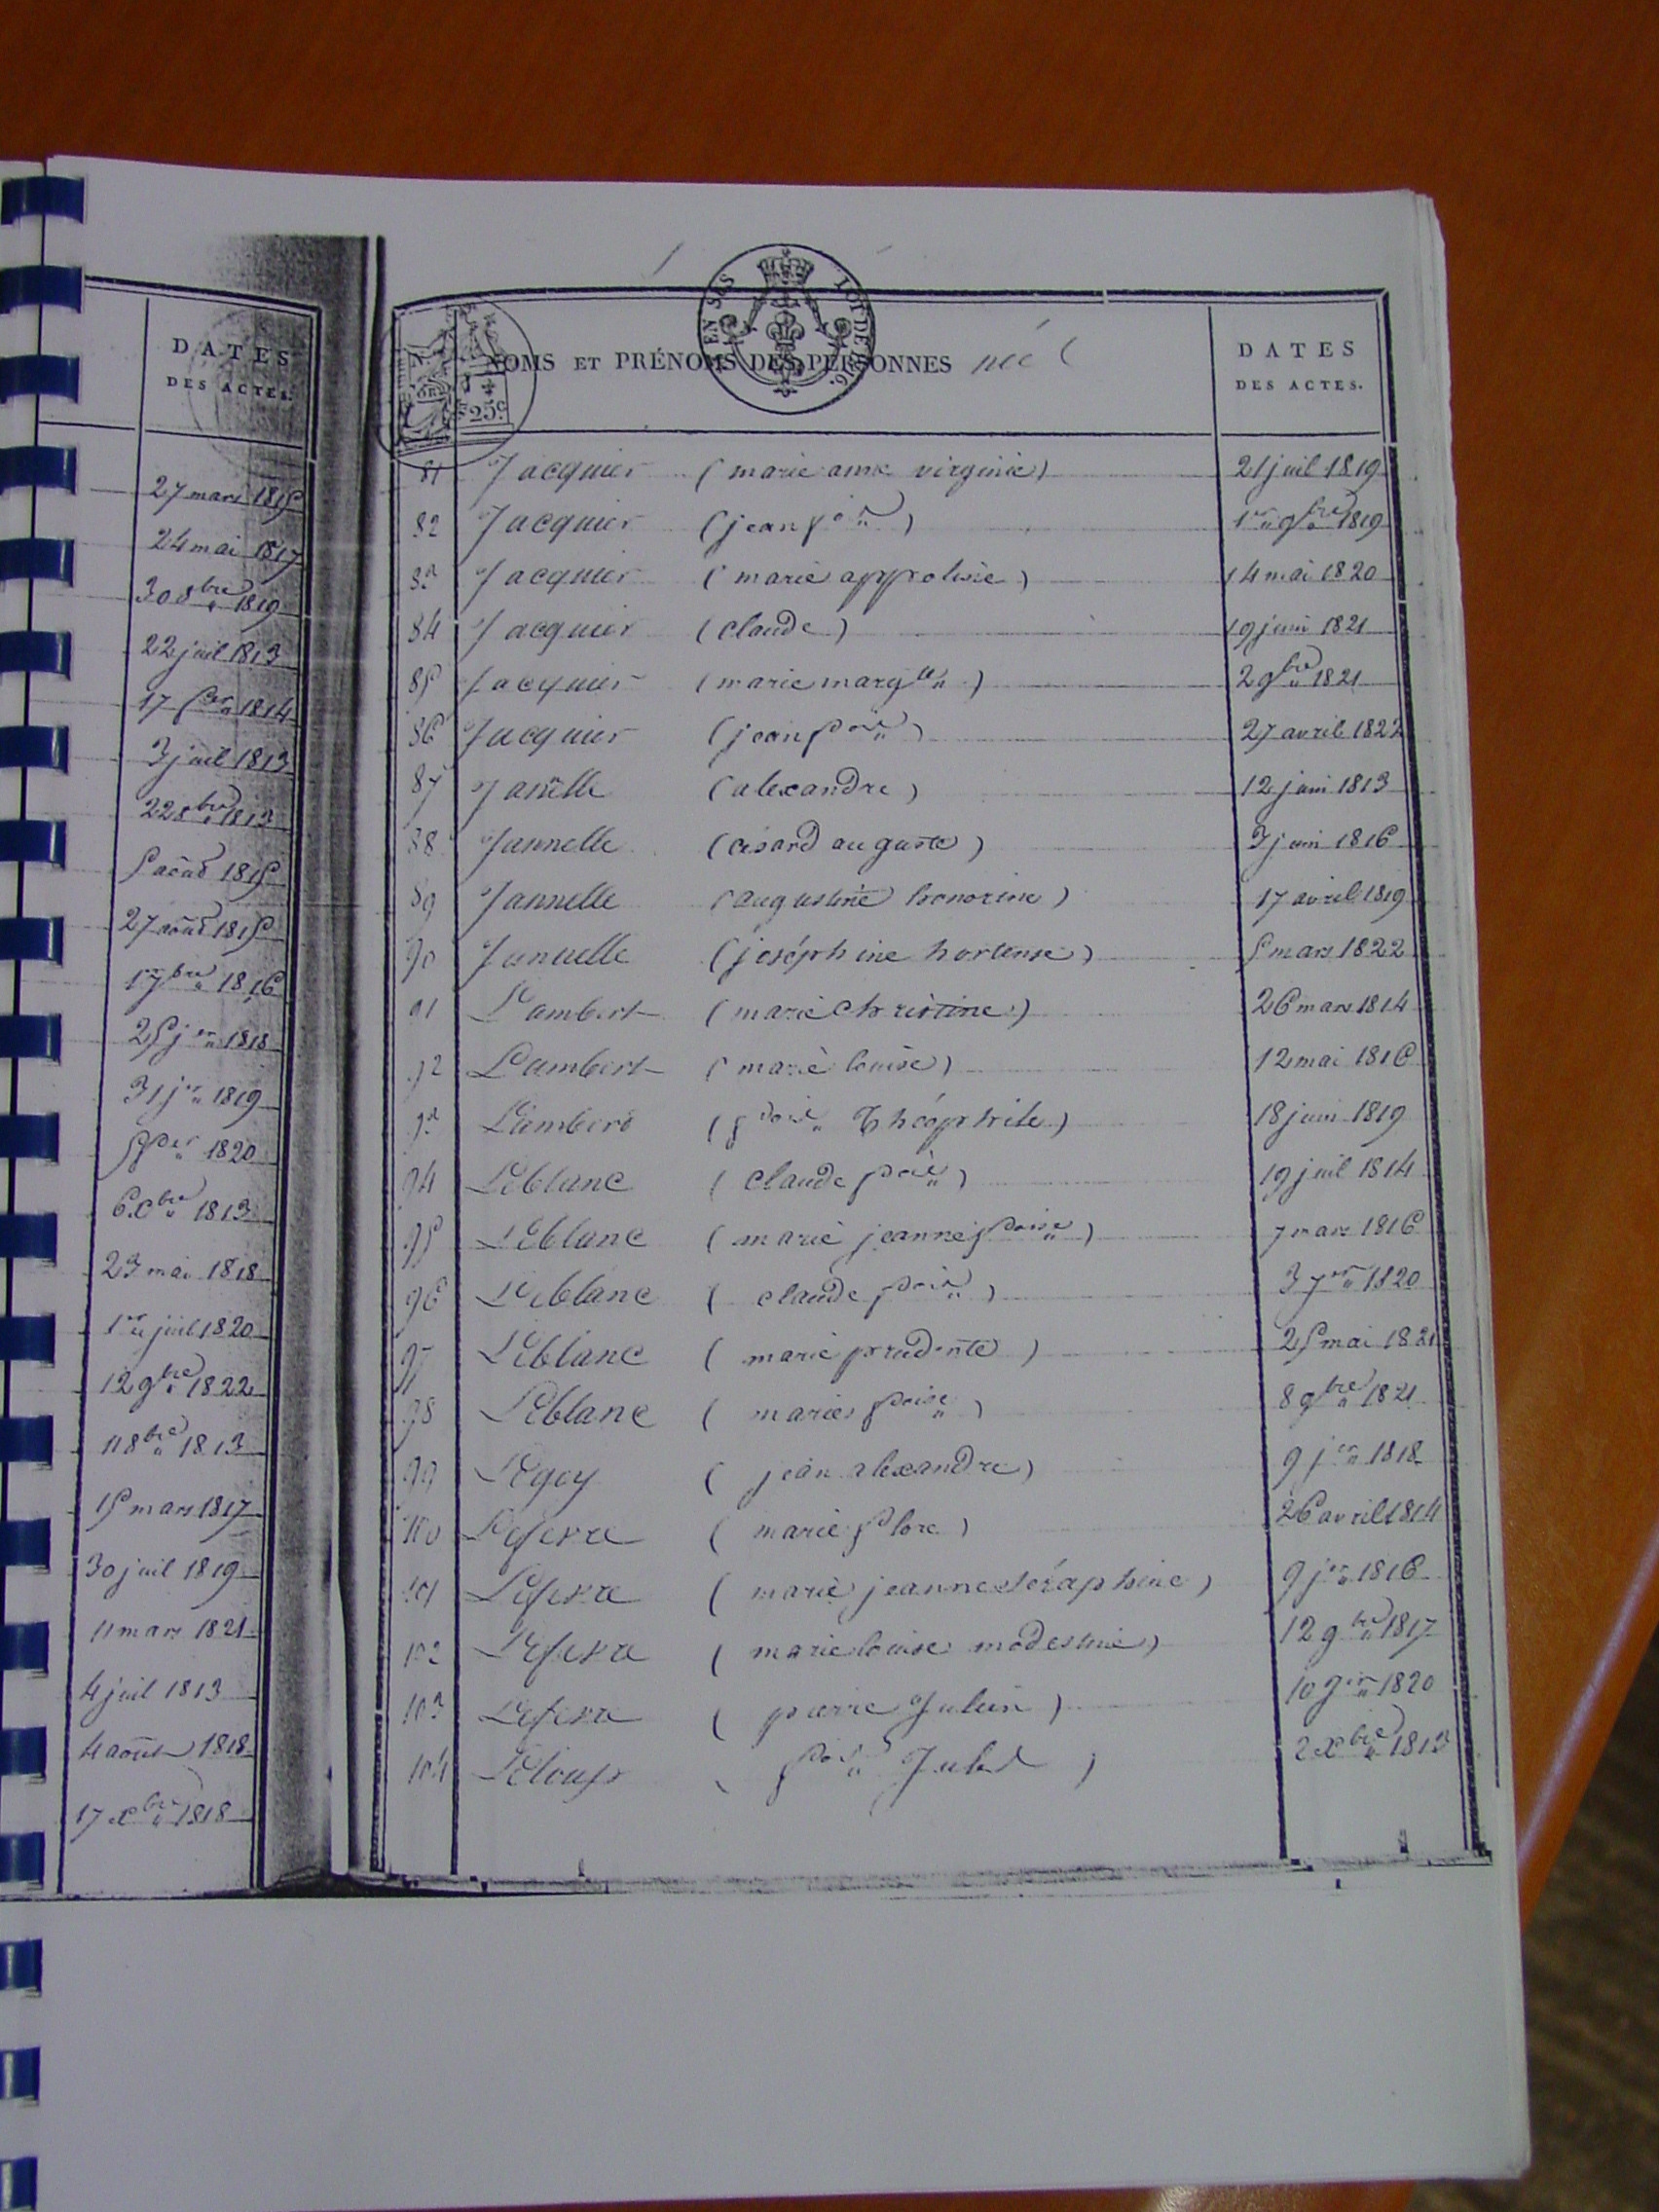 DATES
DES ACTES.
27 mars 1815
24 mai 1817
30 8bre 1819
22 juil 1813
17 1814
3 juil 1813
22 8bre 1813
5 aoud 1815
27 aoud 1815
1er 7bre 1816
25 jer 1818
31 jer 1819
1820
6 xbre 1813
23 mai 1818
1er juil 1820
12 9bre 1822
11 8bre 1813
15 mars 1817
30 juil 1819
11 mars 1821
4 juil 1813
4 aout 1818
17 xbre 1818
EN SES LOI DE
25c.
NOMS ET PRÉNOMS DES PERSONNES née
DATES
DES ACTES.
81 Jacquier (marie anne virginie) 21 juil 1819
82 Jacquier (jean fois) 1er 9bre 1819
83 Jacquier (marie appolinie) 14 mai 1820
84 Jacquier (claude) 19 juin 1821
85 Jacquier (marie margte) 2 9bre 1821
86 Jacquier (jean fois) 27 avril 1822
87 Janelle (alexandre) 12 juin 1813
88 Jannelle (cesard auguste) 3 juin 1816
89 Jannelle (augustine honorine) 17 avril 1819
90 Jannelle (joséphine hortense) 5 mars 1822
91 Lambert (marie christine) 26 mars 1814
92 Lambert (marie louise) 12 mai 1816
93 Lambert (foise Théophile) 18 juin 1819
94 Leblanc (claude fois) 19 juil 1814
95 Leblanc (marie jeanne foise) 7 mars 1816
96 Leblanc (claude fois) 3 1820
97 Leblanc (marie prudente) 25 mai 1821
98 Leblanc (marie foise) 8 9bre 1821
99 Legey (jean alexandre) 9 jer 1818
100 Lefevre (marie flore) 26 avril 1814
101 Lefevre (marie jeanne séraphine) 9 jer 1816
102 Lefevre (marie louise modestine) 12 9bre 1817
103 Lefevre (pierre Julien) 10 jer 1820
104 Leloup (fois Jules) 2 xbre 1813